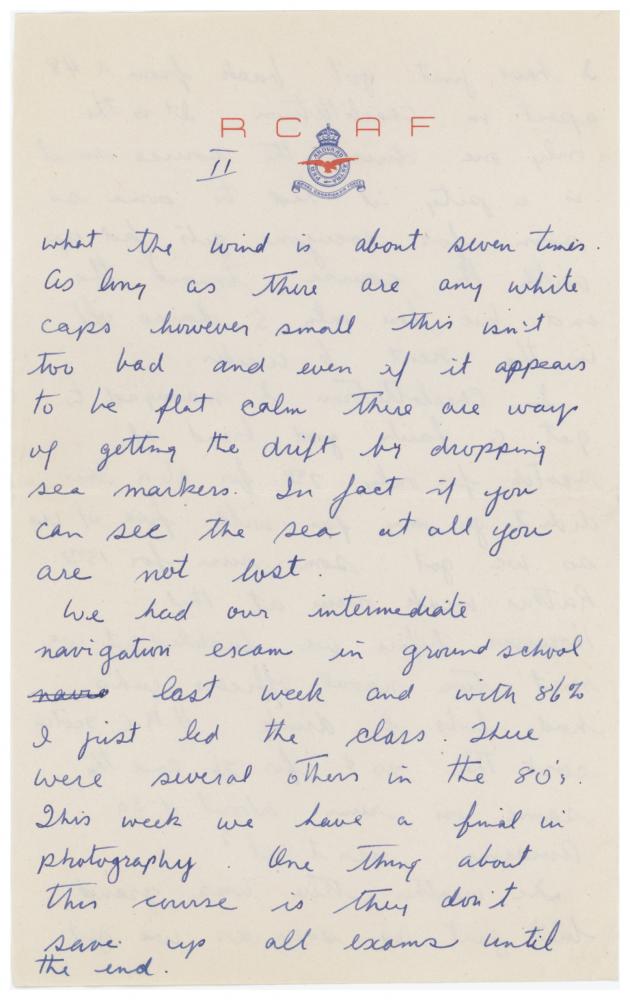 RCAF
II
what the wind is about seven times.
As long as there are any white
caps however small this isn't
too bad and even if it appears
to be flat calm there are ways
of getting the drift by dropping
sea markers. In fact if you
can see the sea at all you
are not lost.
We had our intermediate
navigation exam in ground school
navig last week and with 86%
I just led the class. There
were several others in the 80's.
This week we have a final in
photography. One thing about
this course is they don't
save up all exams until
the end.